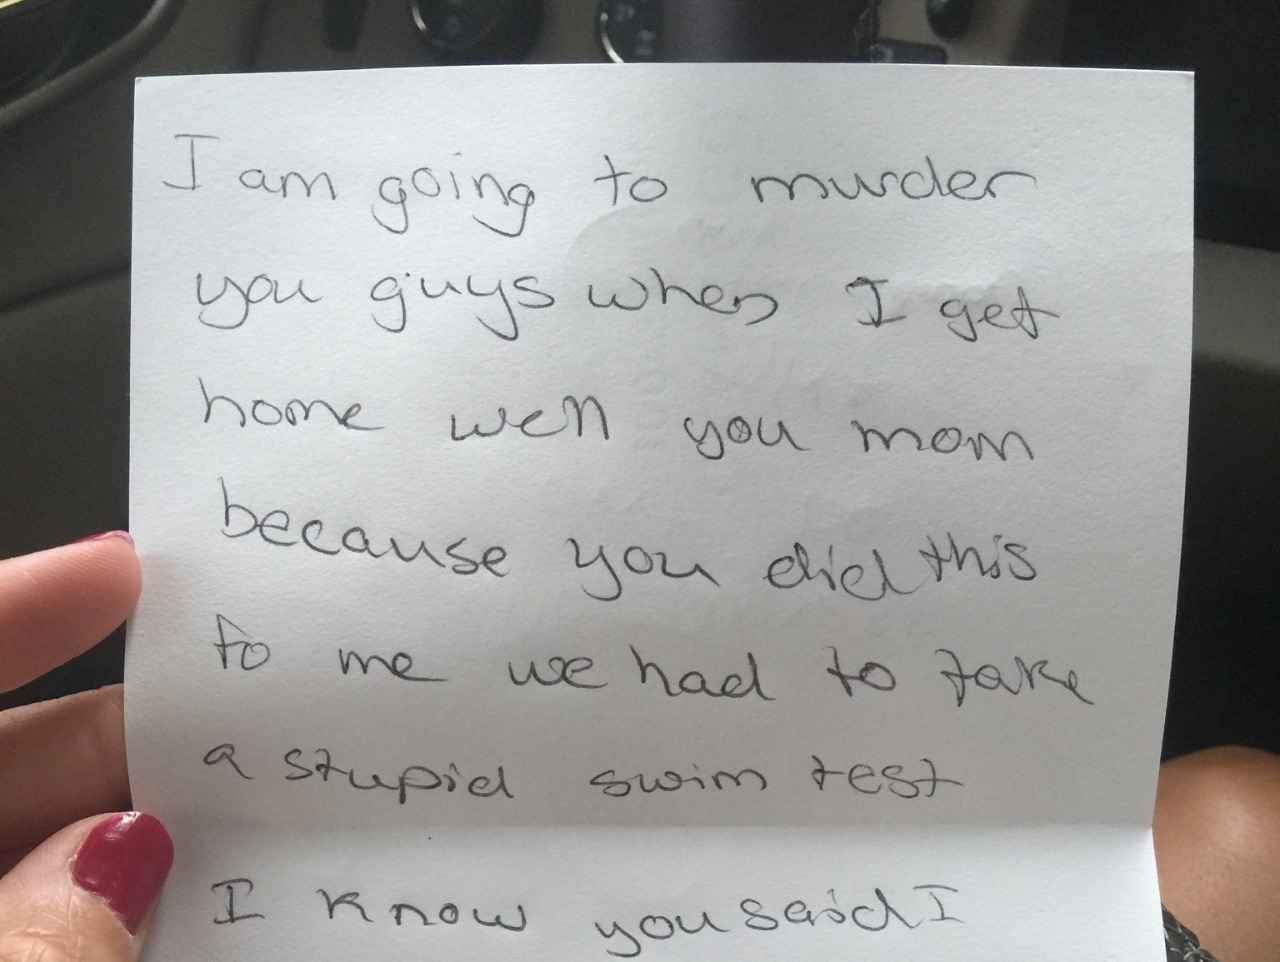 I am going to murder
you guys when I get
home well you mom
because you did this
to me we had to take
a stupid swim test
I know you said I